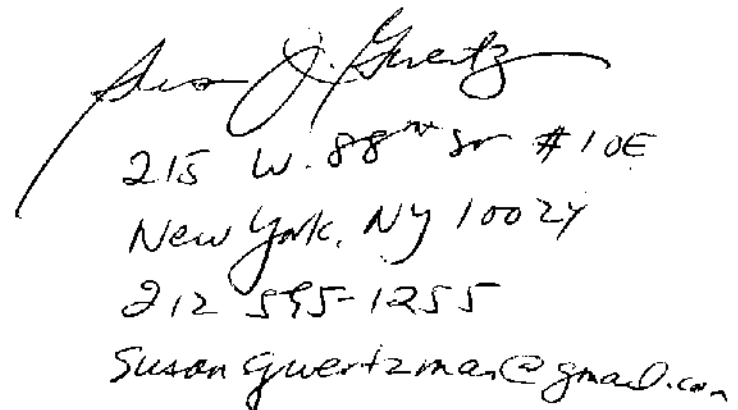 Susan J. Gwertz
215 W. 88th St #10E
New York, NY 10024
212 595-1255
susangwertzman@gmail.com